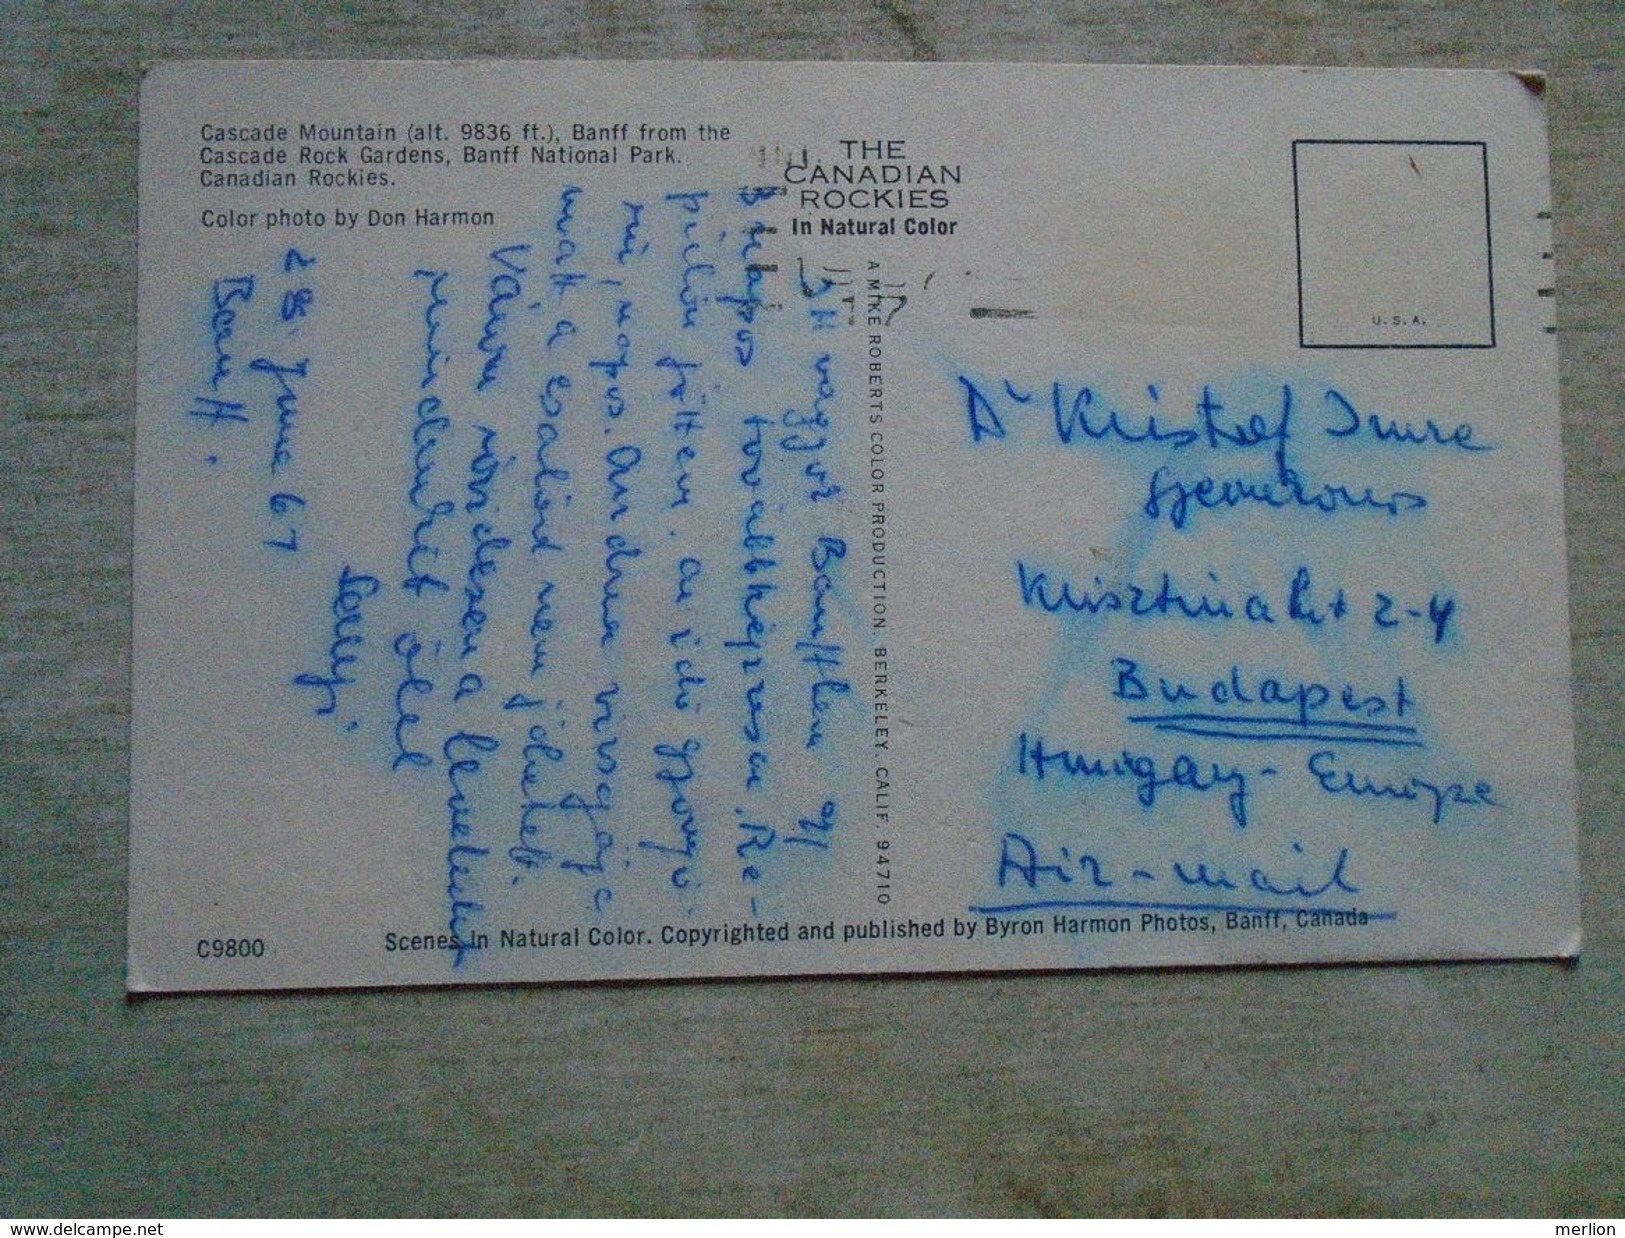 Cascade Mountain (alt. 9836 ft.), Banff from the
Cascade Rock Gardens, Banff National Park.
Canadian Rockies.
Color photo by Don Harmon
THE
CANADIAN
ROCKIES
In Natural Color
U.S.A.
A MIKE ROBERTS COLOR PRODUCTION. BERKELEY, CALIF. 94710
Itt vagyok Banffben egy
továbbképzésen. Re-
pülön jöttem. az idö
miatt a családod nem jöhetett.
Várva a leveledet
mindenkit ölel
28. June 67
Banff.
Dr Kristof Imre
Krisztina krt 2-4
Budapest
Hungary - Europe
Air-mail
C9800
Scenes in Natural Color. Copyrighted and published by Byron Harmon Photos, Banff, Canada
www.delcampe.net
merlion